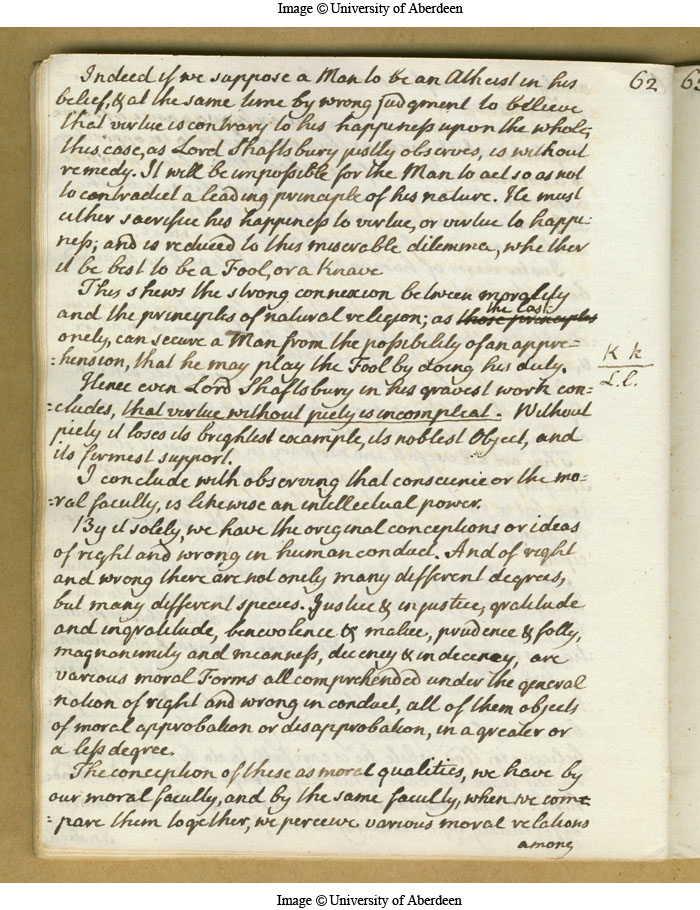 Image © University of Aberdeen
62
63
Indeed if we suppose a Man to be an Atheist in his
belief, & at the same time by wrong judgment to believe
that virtue is contrary to his happiness upon the whole;
this case, as Lord Shaftsbury justly observes, is without
remedy. It will be impossible for the Man to act so as not
to contradict a leading principle of his nature. He must
either sacrifice his happiness to virtue, or virtue to happi-
ness; and is reduced to this miserable dilemma, whether
it be best to be a Fool, or a Knave
This shews the strong connexion between morality
and the principles of natural religion; as those principles the last
onely, can secure a Man from the possibility of an appre=
=hension, that he may play the Fool by doing his duty.
K k
L l.
Hence even Lord Shaftsbury in his gravest work con=
=cludes, that virtue without piety is incompleat. Without
piety it loses its brightest example, its noblest Object, and
its firmest support.
I conclude with observing that conscience or the mo=
=ral faculty, is likewise an intellectual power.
By it solely, we have the original conceptions or ideas
of right and wrong in human conduct. And of right
and wrong there are not onely many different degrees,
but many different species. Justice & injustice, gratitude
and ingratitude, benevolence & malice, prudence & folly,
magnanimity and meanness, decency & indecency, are
various moral Forms all comprehended under the general
notion of right and wrong in conduct, all of them objects
of moral approbation or disapprobation, in a greater or
a less degree.
The conception of these as moral qualities, we have by
our moral faculty, and by the same faculty, when we com=
=pare them together, we perceive various moral relations
among
Image © University of Aberdeen